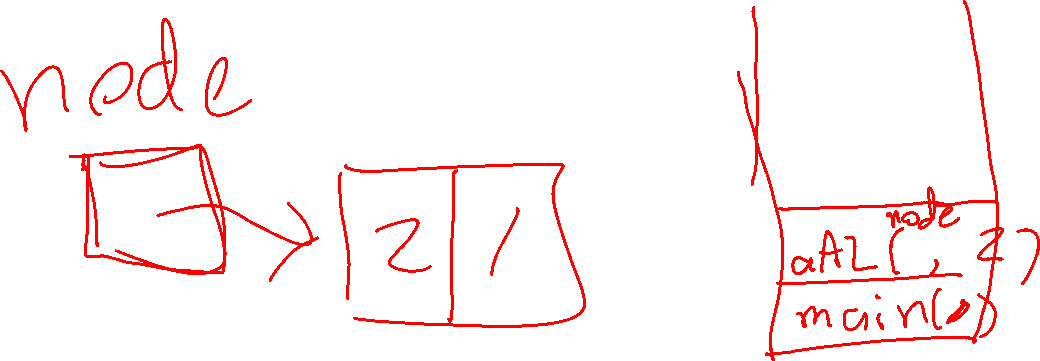 node
2 /
node
aAL( , 2)
main()